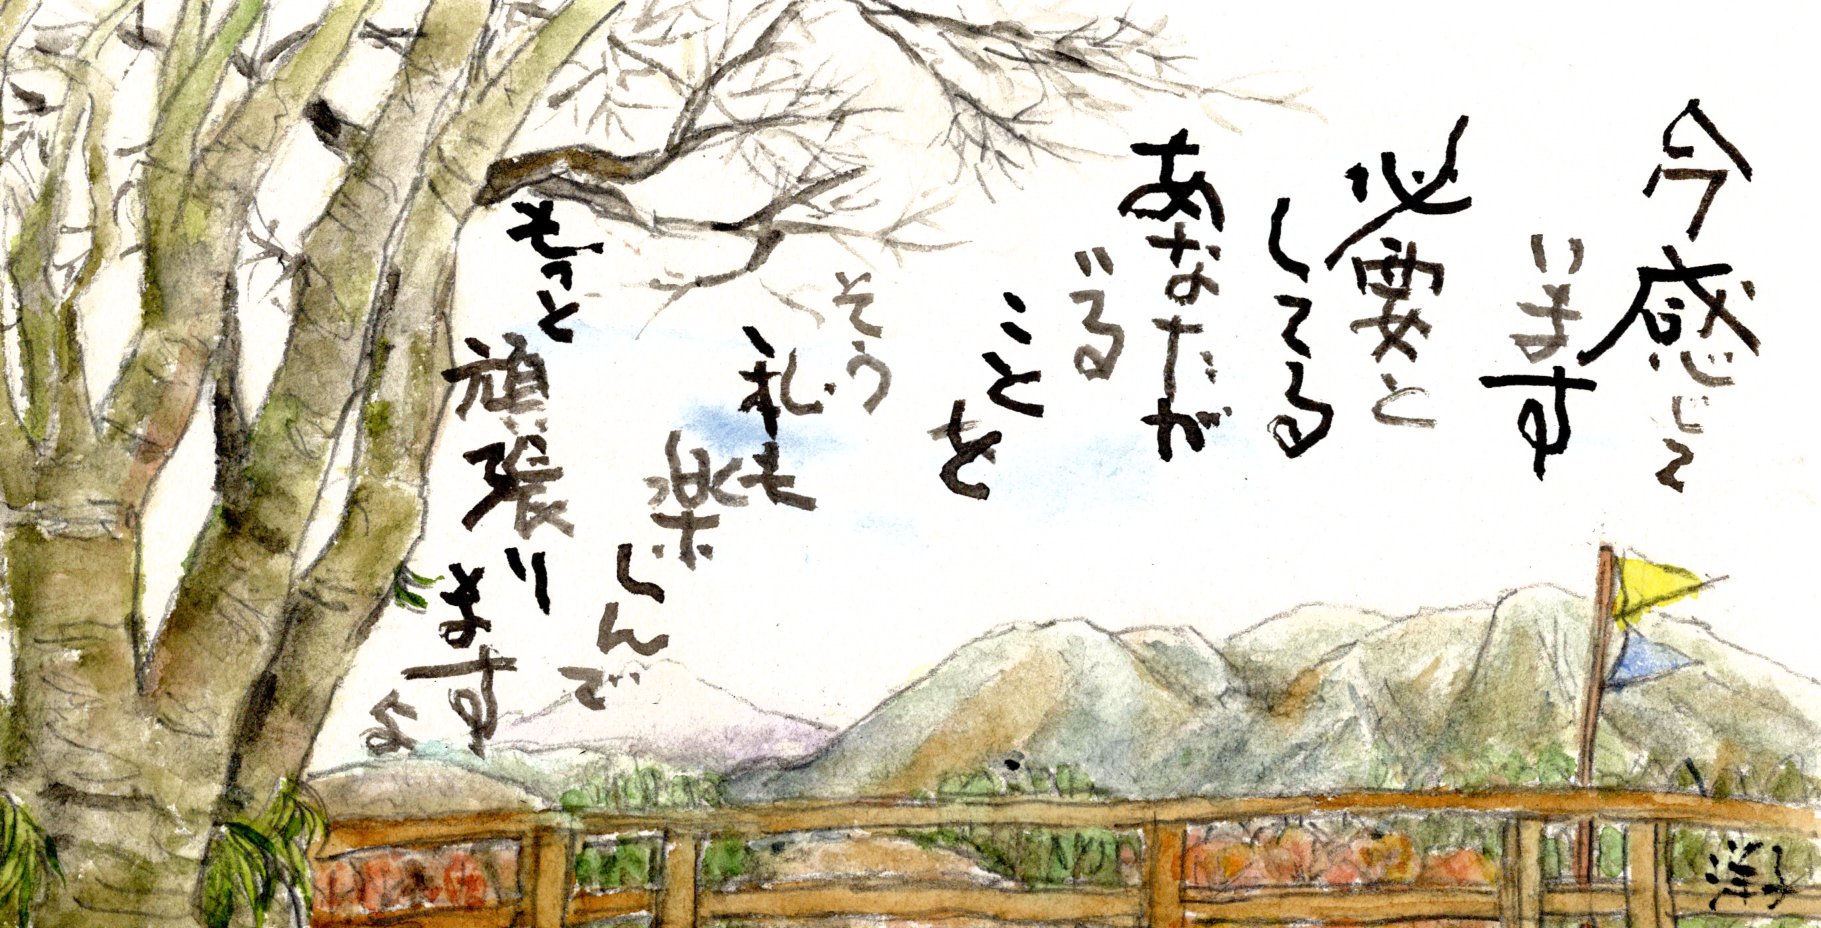 今感じて
います
必要と
してる
あなたが
いる
ことを
そう
私も
楽しんで
もっと
頑張ります